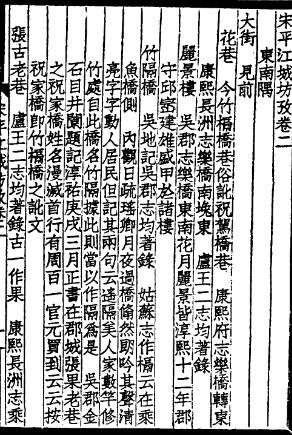 宋平江城坊攷卷二
東南隅
大街　見前
花巷　今竹槅橋巷俗訛祝駕橋巷　康熙府志樂橋轉東
康熙長洲志樂橋南堍東　盧王二志均著錄
麗景樓　吳郡志樂橋東南花月麗景皆淳熙十二年郡
守邱崈建雄盛甲於諸樓
竹隔橋　吳地記吳郡志均著錄　姑蘇志作槅云在乘
魚橋側　內觀日疏瑤卿月夜過橋脩然朗吟其聲清
亮字字動人居民但記其兩句云遙隔美人家數竿修
竹處自此橋名竹隔據此則當以作隔爲是　吳郡金
石目井闌題記淳祐庚戌三月正書在郡城張果老巷
之祝家橋姓名漫滅首行有周百一官元買到云云按
祝家橋卽竹槅橋之訛文
張古老巷　盧王二志均著錄古一作果　康熙長洲志乘